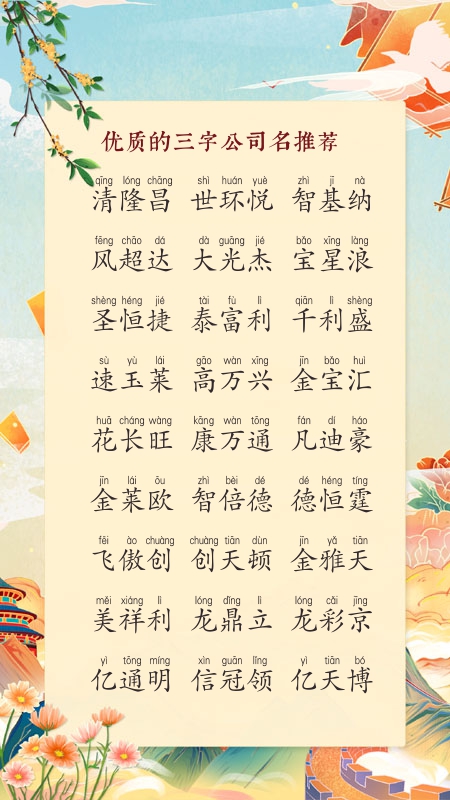 优质的三字公司名推荐
qīng lóng chāng shì huán yuè zhì jī nà
清隆昌 世环悦 智基纳
fēng chāo dá dà guāng jié bǎo xīng làng
风超达 大光杰 宝星浪
shèng héng jié tài fù lì qiān lì shèng
圣恒捷 泰富利 千利盛
sù yù lái gāo wàn xīng jīn bǎo huì
速玉莱 高万兴 金宝汇
huā cháng wàng kāng wàn tōng fán dí háo
花长旺 康万通 凡迪豪
jīn lái ōu zhì bèi dé dé héng tíng
金莱欧 智倍德 德恒霆
fēi ào chuàng chuàng tiān dùn jīn yǎ tiān
飞傲创 创天顿 金雅天
měi xiáng lì lóng dǐng lì lóng cǎi jīng
美祥利 龙鼎立 龙彩京
yì tōng míng xìn guān lǐng yì tiān bó
亿通明 信冠领 亿天博